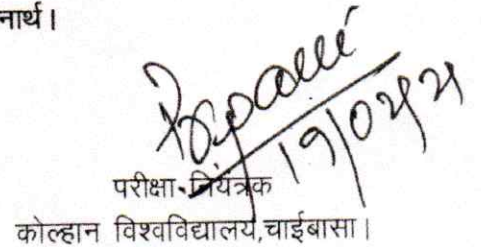 नार्थ।
परीक्षा नियंत्रक
कोल्हान विश्वविद्यालय,चाईबासा।